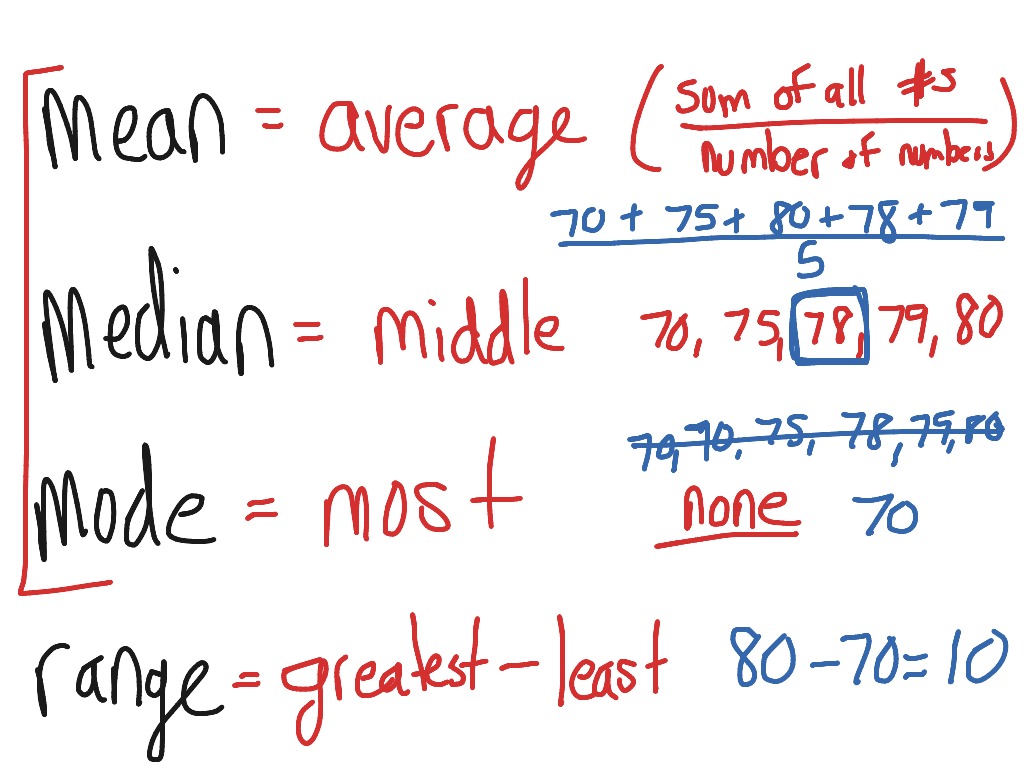 Mean = average (sum of all #s / number of numbers)
70 + 75 + 80 + 78 + 79
5
Median = middle 70, 75, 78, 79, 80
70, 70, 75, 78, 79, 80
Mode = most none 70
range = greatest - least 80 - 70 = 10